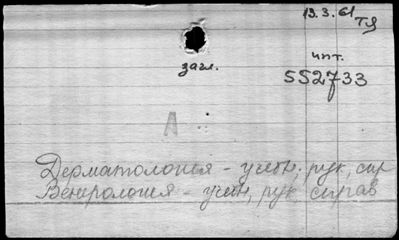 13.3.61
ТЯ
загл.
чит.
552733
А
Дерматология - учебн, рук, спр
Венерология - учебн, рук, справ